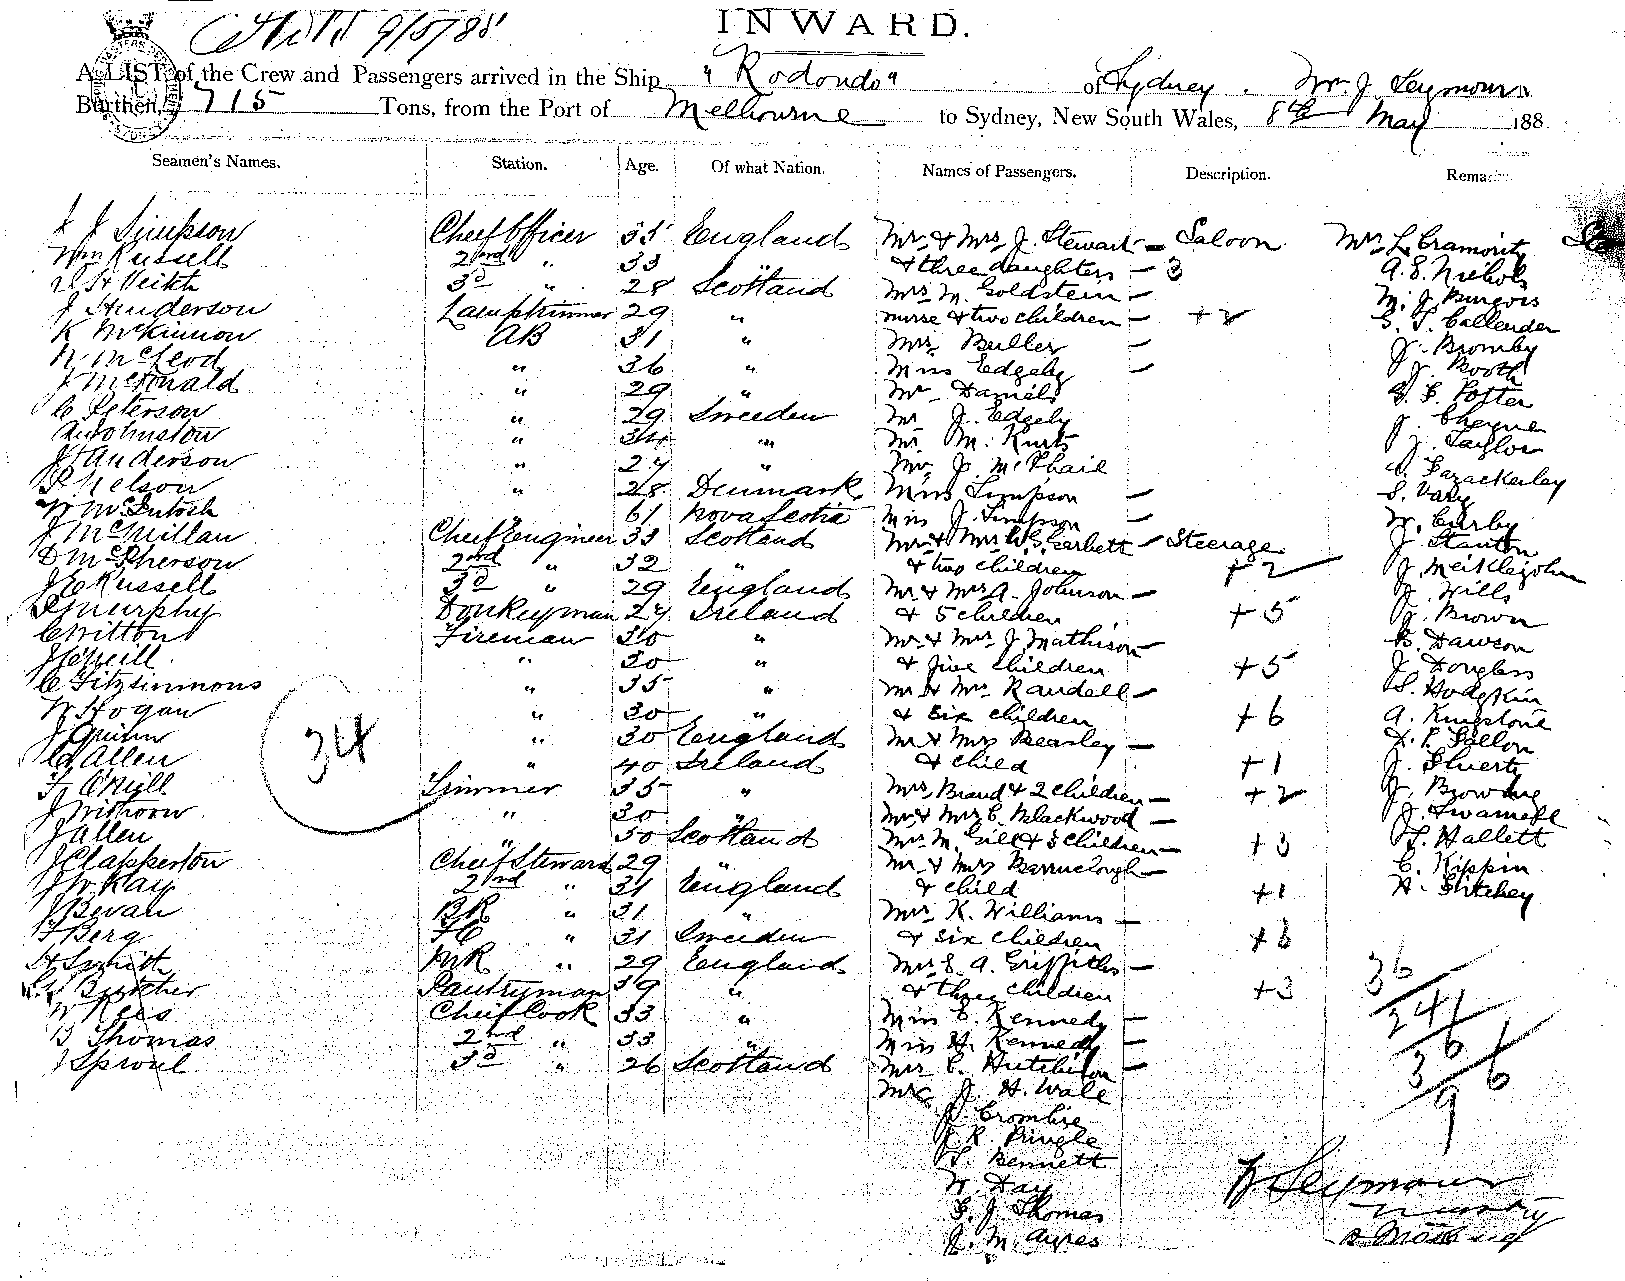 INWARD.
9/5/88
A LIST of the Crew and Passengers arrived in the Ship "Rodondo" of Sydney, Wm J. Seymour
Burthen, 715 Tons, from the Port of Melbourne to Sydney, New South Wales, 8th May 188
Seamen's Names. Station. Age. Of what Nation. Names of Passengers. Description. Remar
J J Simpson Cheif Officer 35 England Mr & Mrs J. Stewart - Saloon Mr L. Cramority
Wm Russell 2nd " 33 " & three daughters - 3 A. E. Nichols
Veitch 3d " 28 Scotland Mrs M. Goldstein - M. J. Burgois
J Henderson Lamptrimmer 29 " nurse & two children - +2 S. T. Callender
K McKinnon AB 31 " Mrs Buller - J. Bromby
N McLeod " 36 " Miss Edgeby - J. Booth
J McDonald " 29 " Mr Daniels G. F. Potter
C Peterson " 29 Sweeden Mr J. Edgeby J. Cheyne
A Johnston " 34 " Mr M. Kurts J. Taylor
J Anderson " 27 " Mr J. McPhail Fazackerley
P Nelson " 28 Denmark Miss Simpson - S. Vary
W McIntosh " 61 Nova Scotia Miss J. Simpson - W. Curby
J McMillan Cheif Engineer 33 Scotland Mr & Mrs W. G. Garbett - Steerage J. Stanton
D McPherson 2nd " 32 " & two children +2 J. Meiklejohn
J E Russell 3d " 29 England Mr & Mrs A. Johnson - J. Wills
Murphy Donkeyman 27 Ireland & 5 children +5 J. Brown
C Witton Fireman 30 " Mr & Mrs J Mathison - Dawson
J O'Neill " 30 " & five children +5 J. Douglass
C Fitzsimmons " 35 " Mr & Mrs Randell - Hodgkin
W Hogan " 30 " & six children +6 A. Kingstone
J Quinn " 30 England Mr & Mrs Bearsley - Fallon
C Allen " 40 Ireland & child +1 J.
F O'Neill Trimmer 35 " Mrs Brand & 2 children - +2 J. Browning
J " 30 " Mr & Mrs C. Blackwood - J.
J Allen " 50 Scotland Mrs M. Gill & 3 children - +3 Hallett
J Clapperton Cheif Steward 29 " Mr & Mrs Barraclough - C. Kippin
J W Kay 2nd " 31 England & child +1 H. Pitchey
J Bevan BR " 31 " Mrs K. Williams -
F Berg FC " 31 Sweeden & six children +6
H Smith MR " 29 England Mrs E. A. Griffiths -
Butcher Pantryman 39 " & three children +3
W Rees Cheif Cook 33 " Miss E. Kennedy -
B Thomas 2nd " 33 " Miss H. Kennedy -
J Sproul 3d " 26 Scotland Mrs C. Hutchison -
Mr J. H. Wale
J. Crombie
J. R. Pringle
Bennett
W. Day
G. J. Thomas
J. M. Ayres
34
36
241
36
36
9
W Seymour